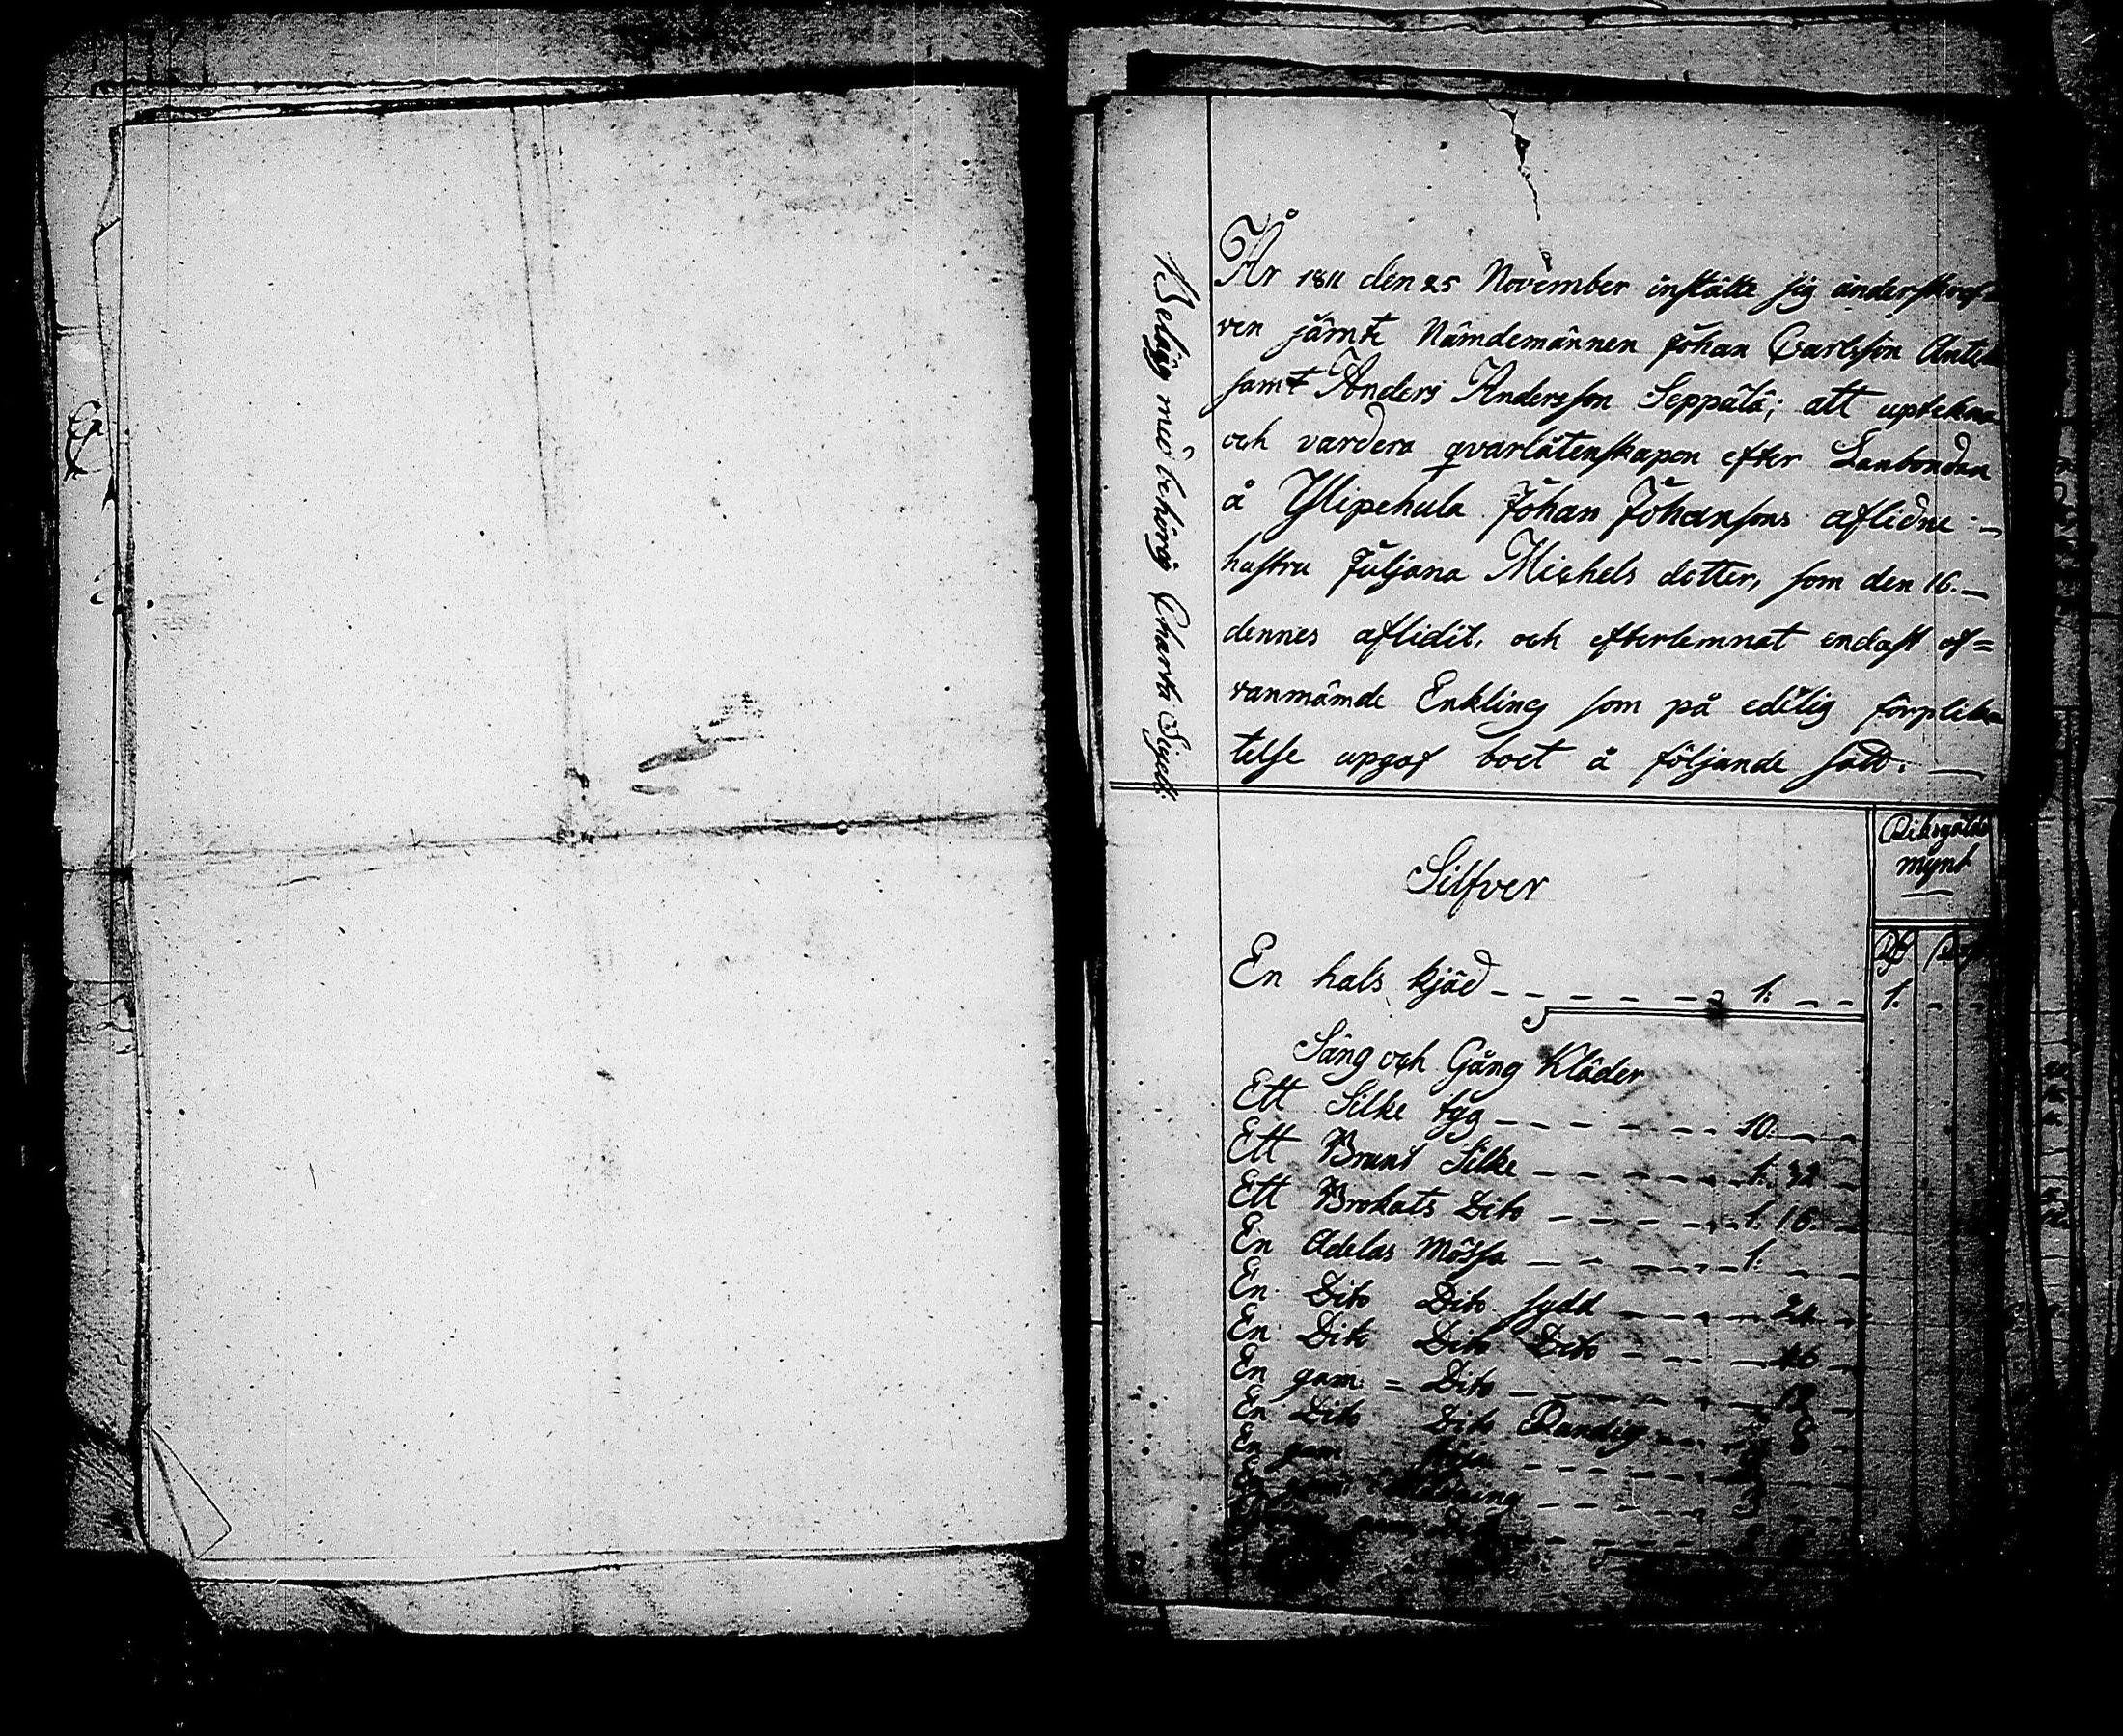 Belagg med behörig Charta Sigill.
År 1811 den 25 November instälte sig underskref=
ven jämte Nämdemännen Johan Carlsson
samt Anders Andersson Seppälä; att uptekna
och värdera qvarlåtenskapen efter Lanbondan
å Ylipehula Johan Johansons aflidne
hustru Juljana Michels dotter, som den 16.
dennes aflidit, och efterlemnat endast of=
vanmämde Enkling som på edelig förplik=
telse upgaf boet å följande sätt.
Riksgälds
mynt
Silfver
En hals kjäd 1. 1.
Säng och Gång Kläder
Ett Silke tyg 10.
Ett Brunt Silke 1. 32
Ett Brokats Dito 1. 16.
En Adelas Mössa 1.
En Dito Dito sydd 24
En Dito Dito Dito 16
En gam= Dito 12
En Dito Dito Randig 8
En gam
En gam